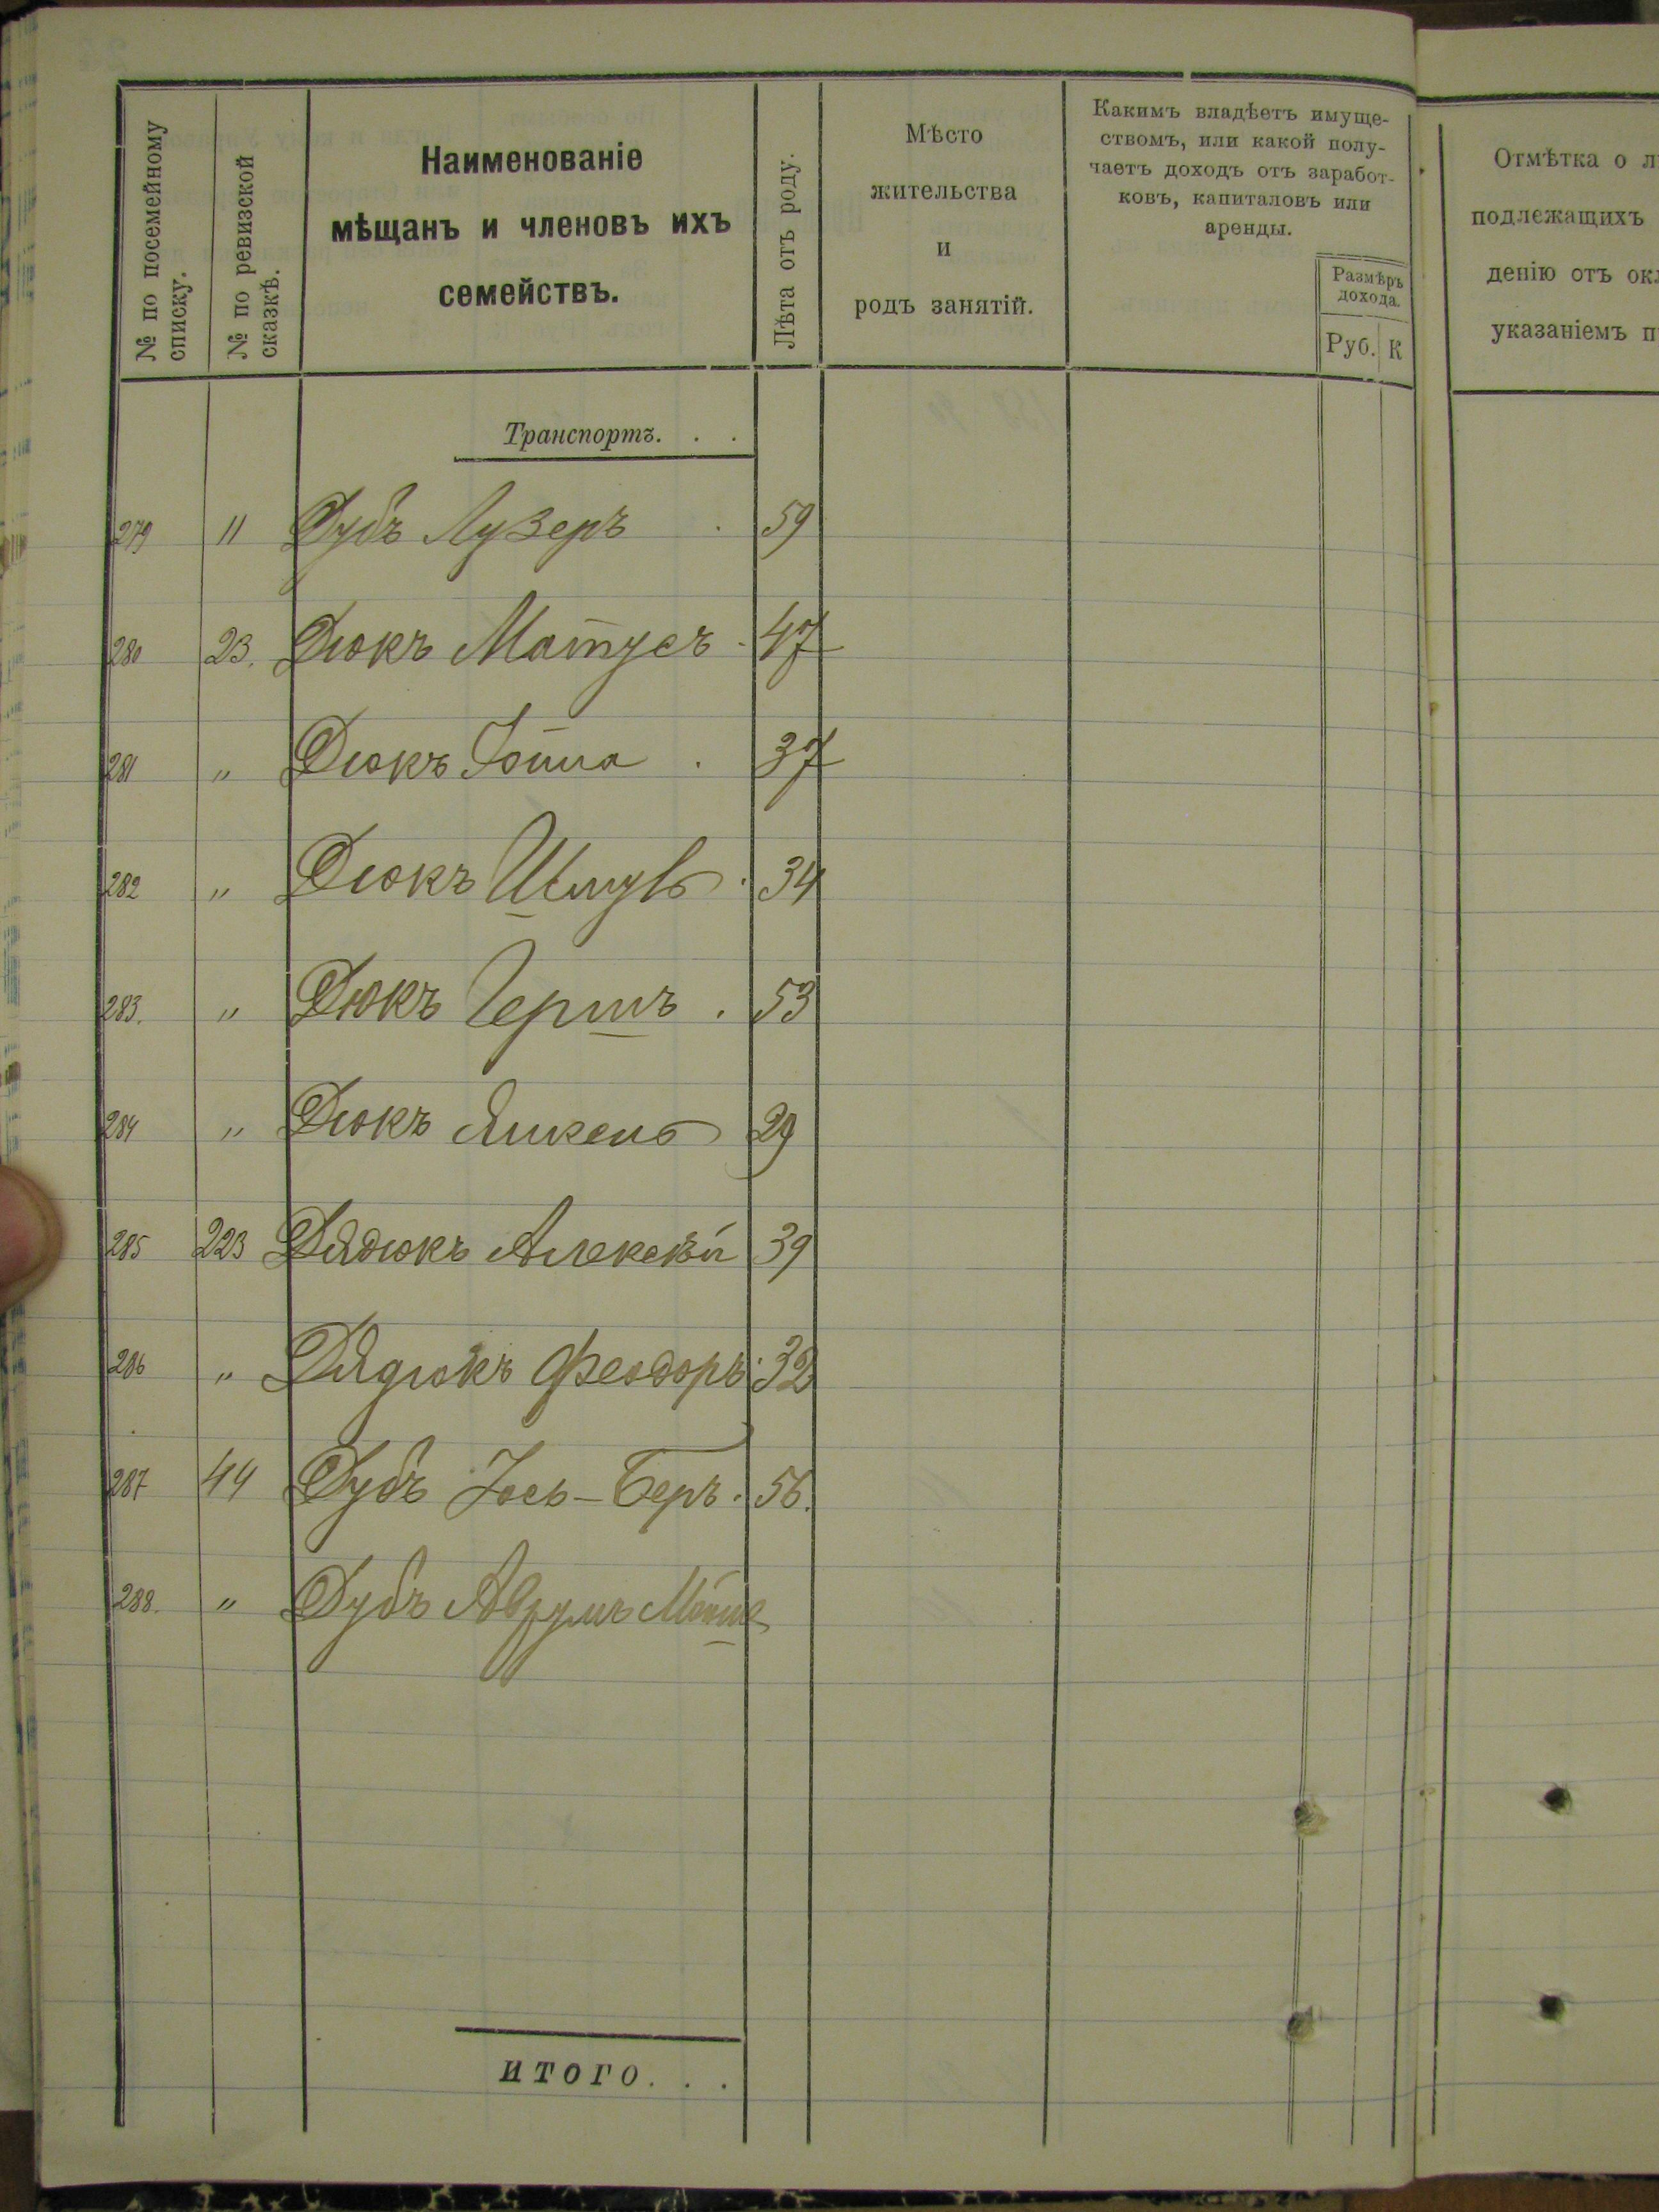 № по посемейному
списку.
№ по ревизской
сказкѣ.
Наименованіе
мѣщанъ и членовъ ихъ
семействъ.
Лѣта отъ роду.
Мѣсто
жительства
и
родъ занятій.
Какимъ владѣетъ имуще-
ствомъ, или какой полу-
чаетъ доходъ отъ заработ-
ковъ, капиталовъ или
аренды.
Размѣръ
дохода.
Руб. К
Отмѣтка о
подлежащихъ
денію отъ
указаніемъ
Транспортъ. . .
279 11 Дубъ Лузеръ . 59
280 23. Дюкъ Матусъ . 47
281 „ Дюкъ . 37
282 „ Дюкъ Шмуль . 34
283. „ Дюкъ Гершъ . 53
284 „ Дюкъ Янкель 29
285 223 Дядюкъ Алексѣй 39
286 „ Дядюкъ Феодоръ. 32
287 44 Дубъ Іось-Беръ. 56.
288. „ Дубъ Аврумъ Мойше
ИТОГО. . .